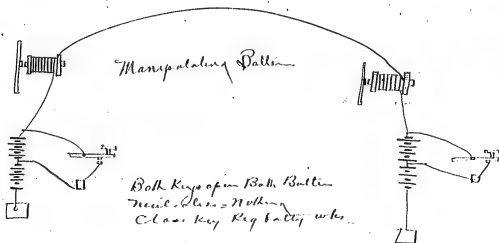 Manipulating Batties
Both Keys open Both Batties
= Nothing
Close Key Reg batty wks